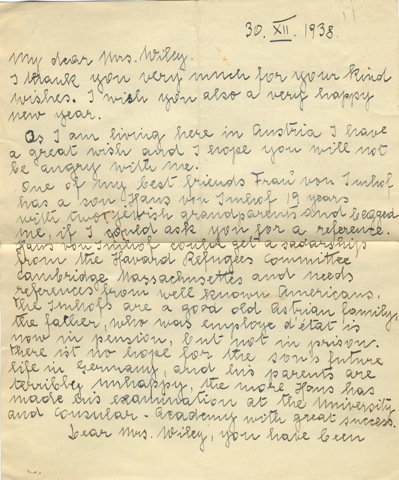 30. XII. 1938.
My dear Mrs. Wiley.
I thank you very much for your kind
wishes. I wish you also a very happy
new year.
As I am living here in Austria I have
a great wish and I hope you will not
be angry with me.
One of my best friends Frau von Imhof
has a son, Hans von Imhof 19 years
with two jewish grandparents and begged
me, if I could ask you for a reference.
Hans von Imhof could get a sadarship
from the Havard Refugees Committee
Cambridge Massachusettes and needs
references from well known Americans.
The Imhofs are a good old Astrian family,
the father, who was employe d'état is
now in pension, but not in prison.
There ist no hope for the sons future
life in Germany, and his parents are
terribly unhappy, the more Hans has
made his examination at the University
and Consular-Academy with great success.
Dear Mrs. Wiley, you have been